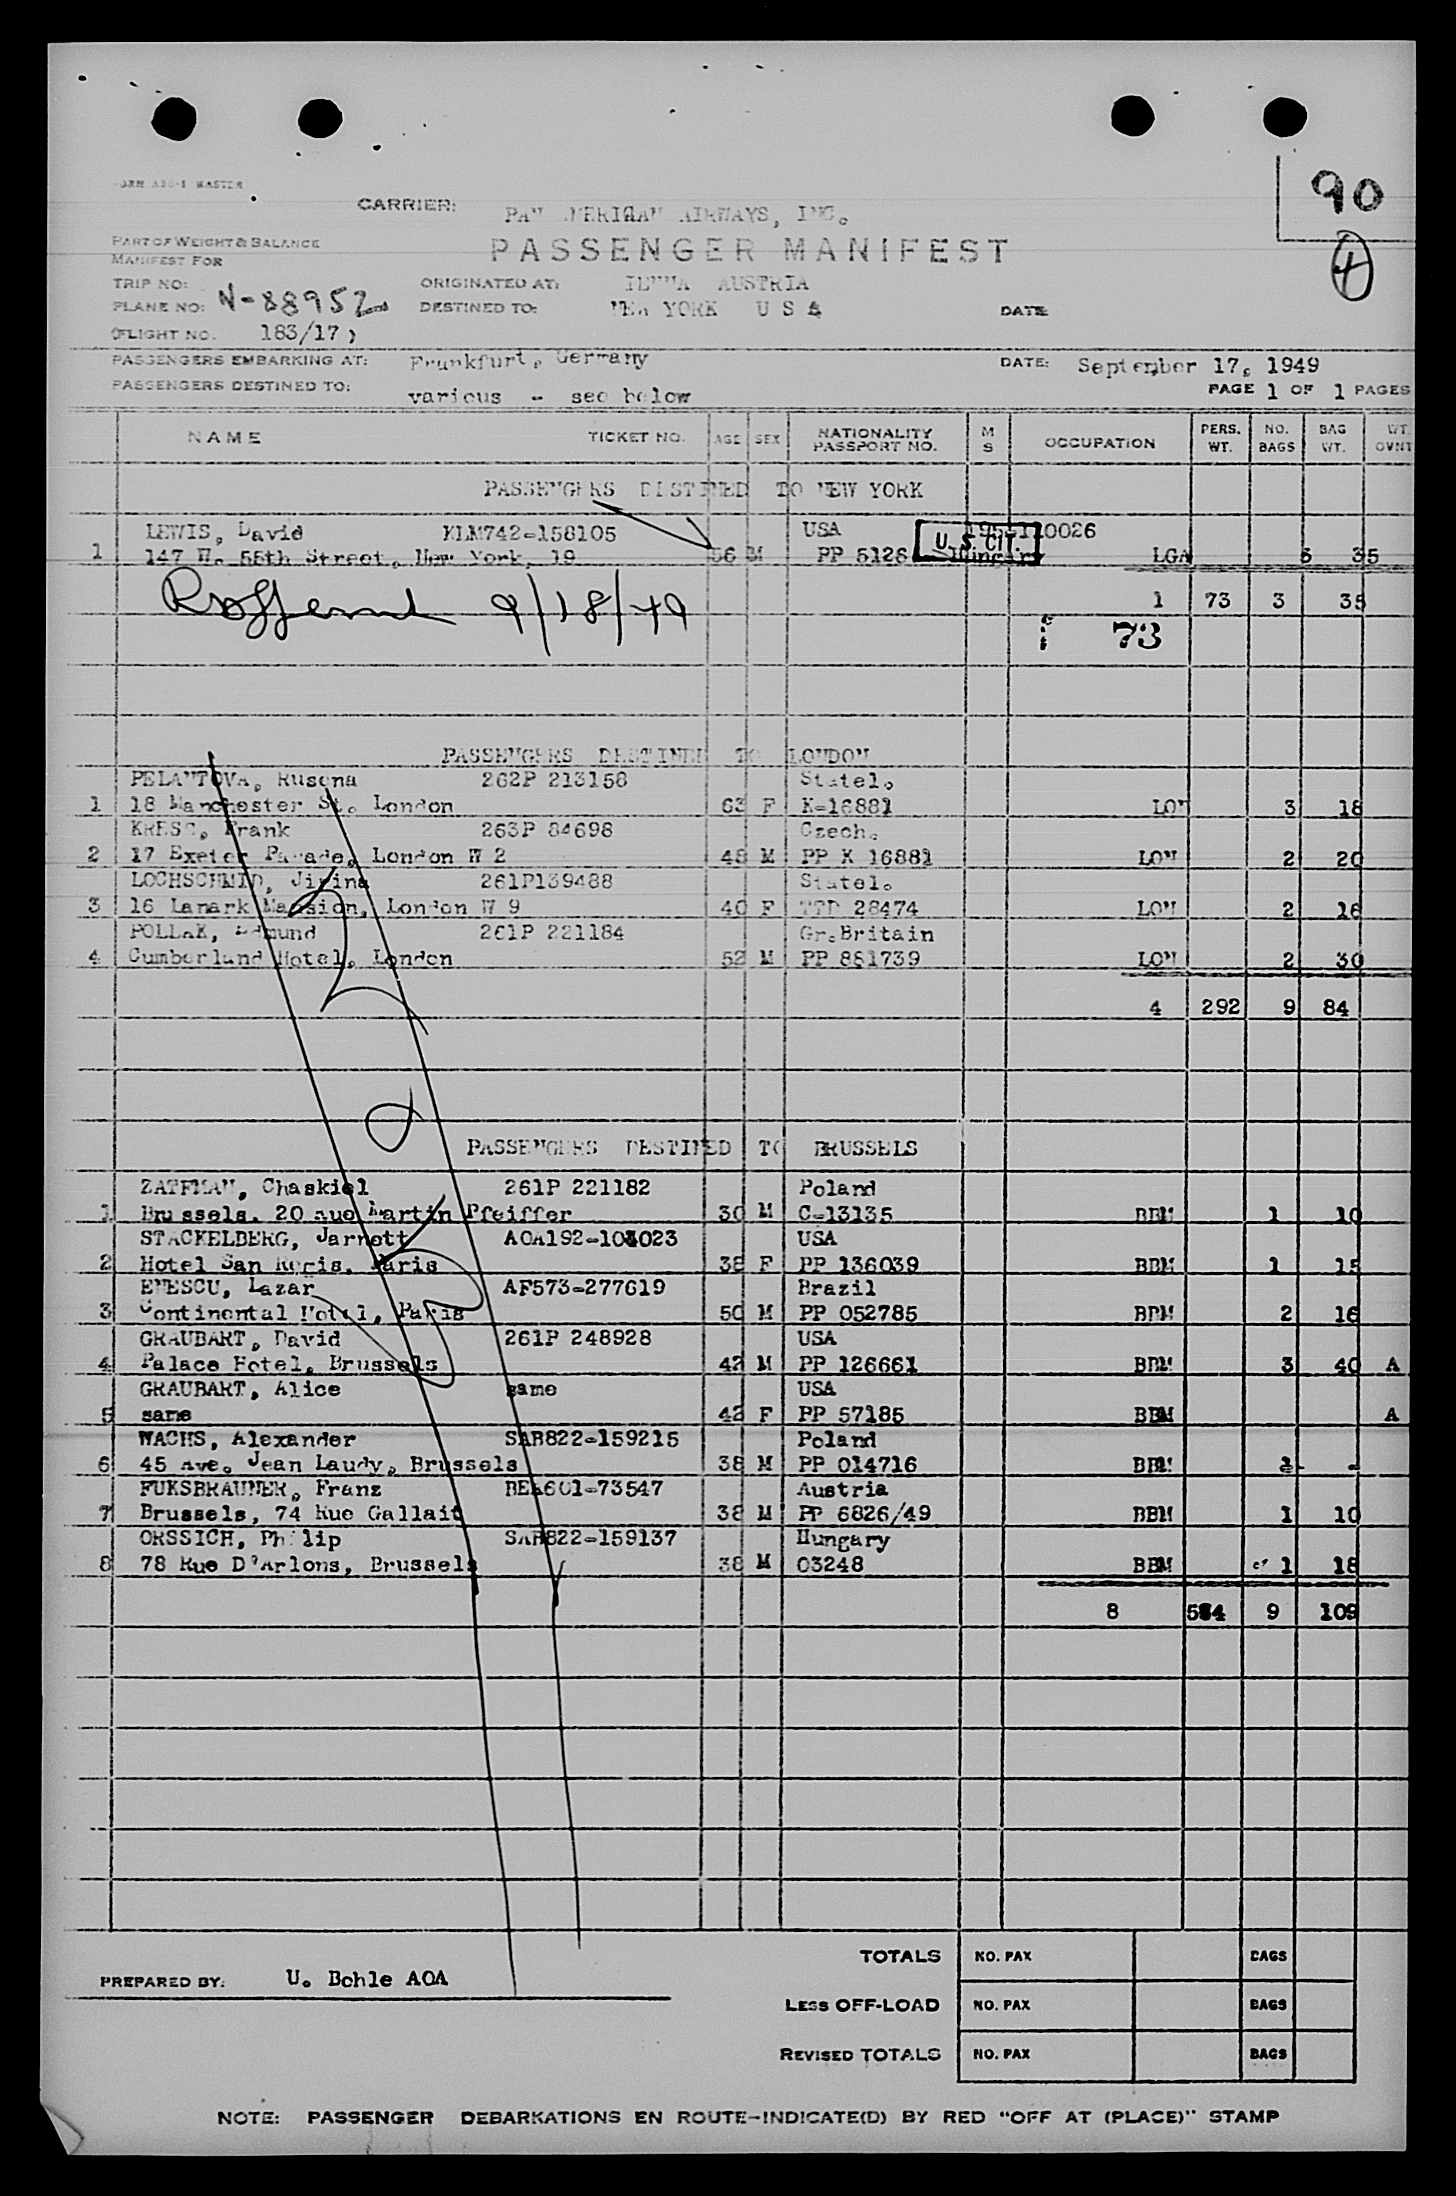 90
CARRIER: PAN AMERICAN AIRWAYS, INC.
PART OF WEIGHT & BALANCE
PASSENGER MANIFEST
MANIFEST FOR
4
TRIP NO: ORIGINATED AT: AUSTRIA
PLANE NO: N-88952 DESTINED TO: NEW YORK U S A DATE
(FLIGHT NO. 183/17)
PASSENGERS EMBARKING AT: Frankfurt, Germany DATE: September 17, 1949
PASSENGERS DESTINED TO: various - see below PAGE 1 OF 1 PAGES
NAME TICKET NO. AGE SEX NATIONALITY PASSPORT NO. M S OCCUPATION PERS. WT. NO. BAGS BAG WT. WT. OVWT
PASSENGERS DESTINED TO NEW YORK
LEWIS, David KLM742-158105 USA
1 147 W. 55th Street, New York, 19 56 M PP 5128 U.S. CIT. LGA 3 35
9/18/49 1 73 3 35
73
PASSENGERS DESTINED TO LONDON
PELANTOVA, Rusena 262P 213158 Statel.
1 18 Manchester St. London 63 F K-16881 LON 3 18
Frank 263P 84698 Czech.
2 17 Exeter Parade, London W 2 48 M PP K 16881 LON 2 20
LOCHSCHMID, Jirina 261P139488 Statel.
3 16 Lanark Mansion, London W 9 40 F 28474 LON 2 16
POLLAK, Edmund 261P 221184 Gr.Britain
4 Cumberland Hotel, London 52 M PP 881739 LON 2 30
4 292 9 84
PASSENGERS DESTINED TO BRUSSELS
Chaskiel 261P 221182 Poland
1 Brussels, 20 Rue Martin Pfeiffer 30 M C-13135 BBM 1 10
STACKELBERG, Jarnott USA
2 Hotel San Regis, Paris 38 F PP 136039 BBM 1 15
ENESCU, Lazar AF573-277619 Brazil
3 Continental Hotel, Paris 50 M PP 052785 BBM 2 16
GRAUBART, David 261P 248928 USA
4 Palace Hotel, Brussels 42 M PP 126661 BBM 3 40 A
GRAUBART, Alice same USA
5 same 42 F PP 57185 BBM A
WACHS, Alexander SAB822-159215 Poland
6 45 Ave. Jean Laudy, Brussels 38 M PP 014716 BBM - -
FUKSBRAUNER, Franz BEA601-73547 Austria
7 Brussels, 74 Rue Gallait 38 M PP 6826/49 BBM 1 10
ORSSICH, Philip SAB822-159137 Hungary
8 78 Rue D'Arlons, Brussels 38 M 03248 BBM 1 18
8 584 9 109
TOTALS NO. PAX BAGS
PREPARED BY: U. Bohle AOA
LESS OFF-LOAD NO. PAX BAGS
REVISED TOTALS NO. PAX BAGS
NOTE: PASSENGER DEBARKATIONS EN ROUTE-INDICATE(D) BY RED "OFF AT (PLACE)" STAMP